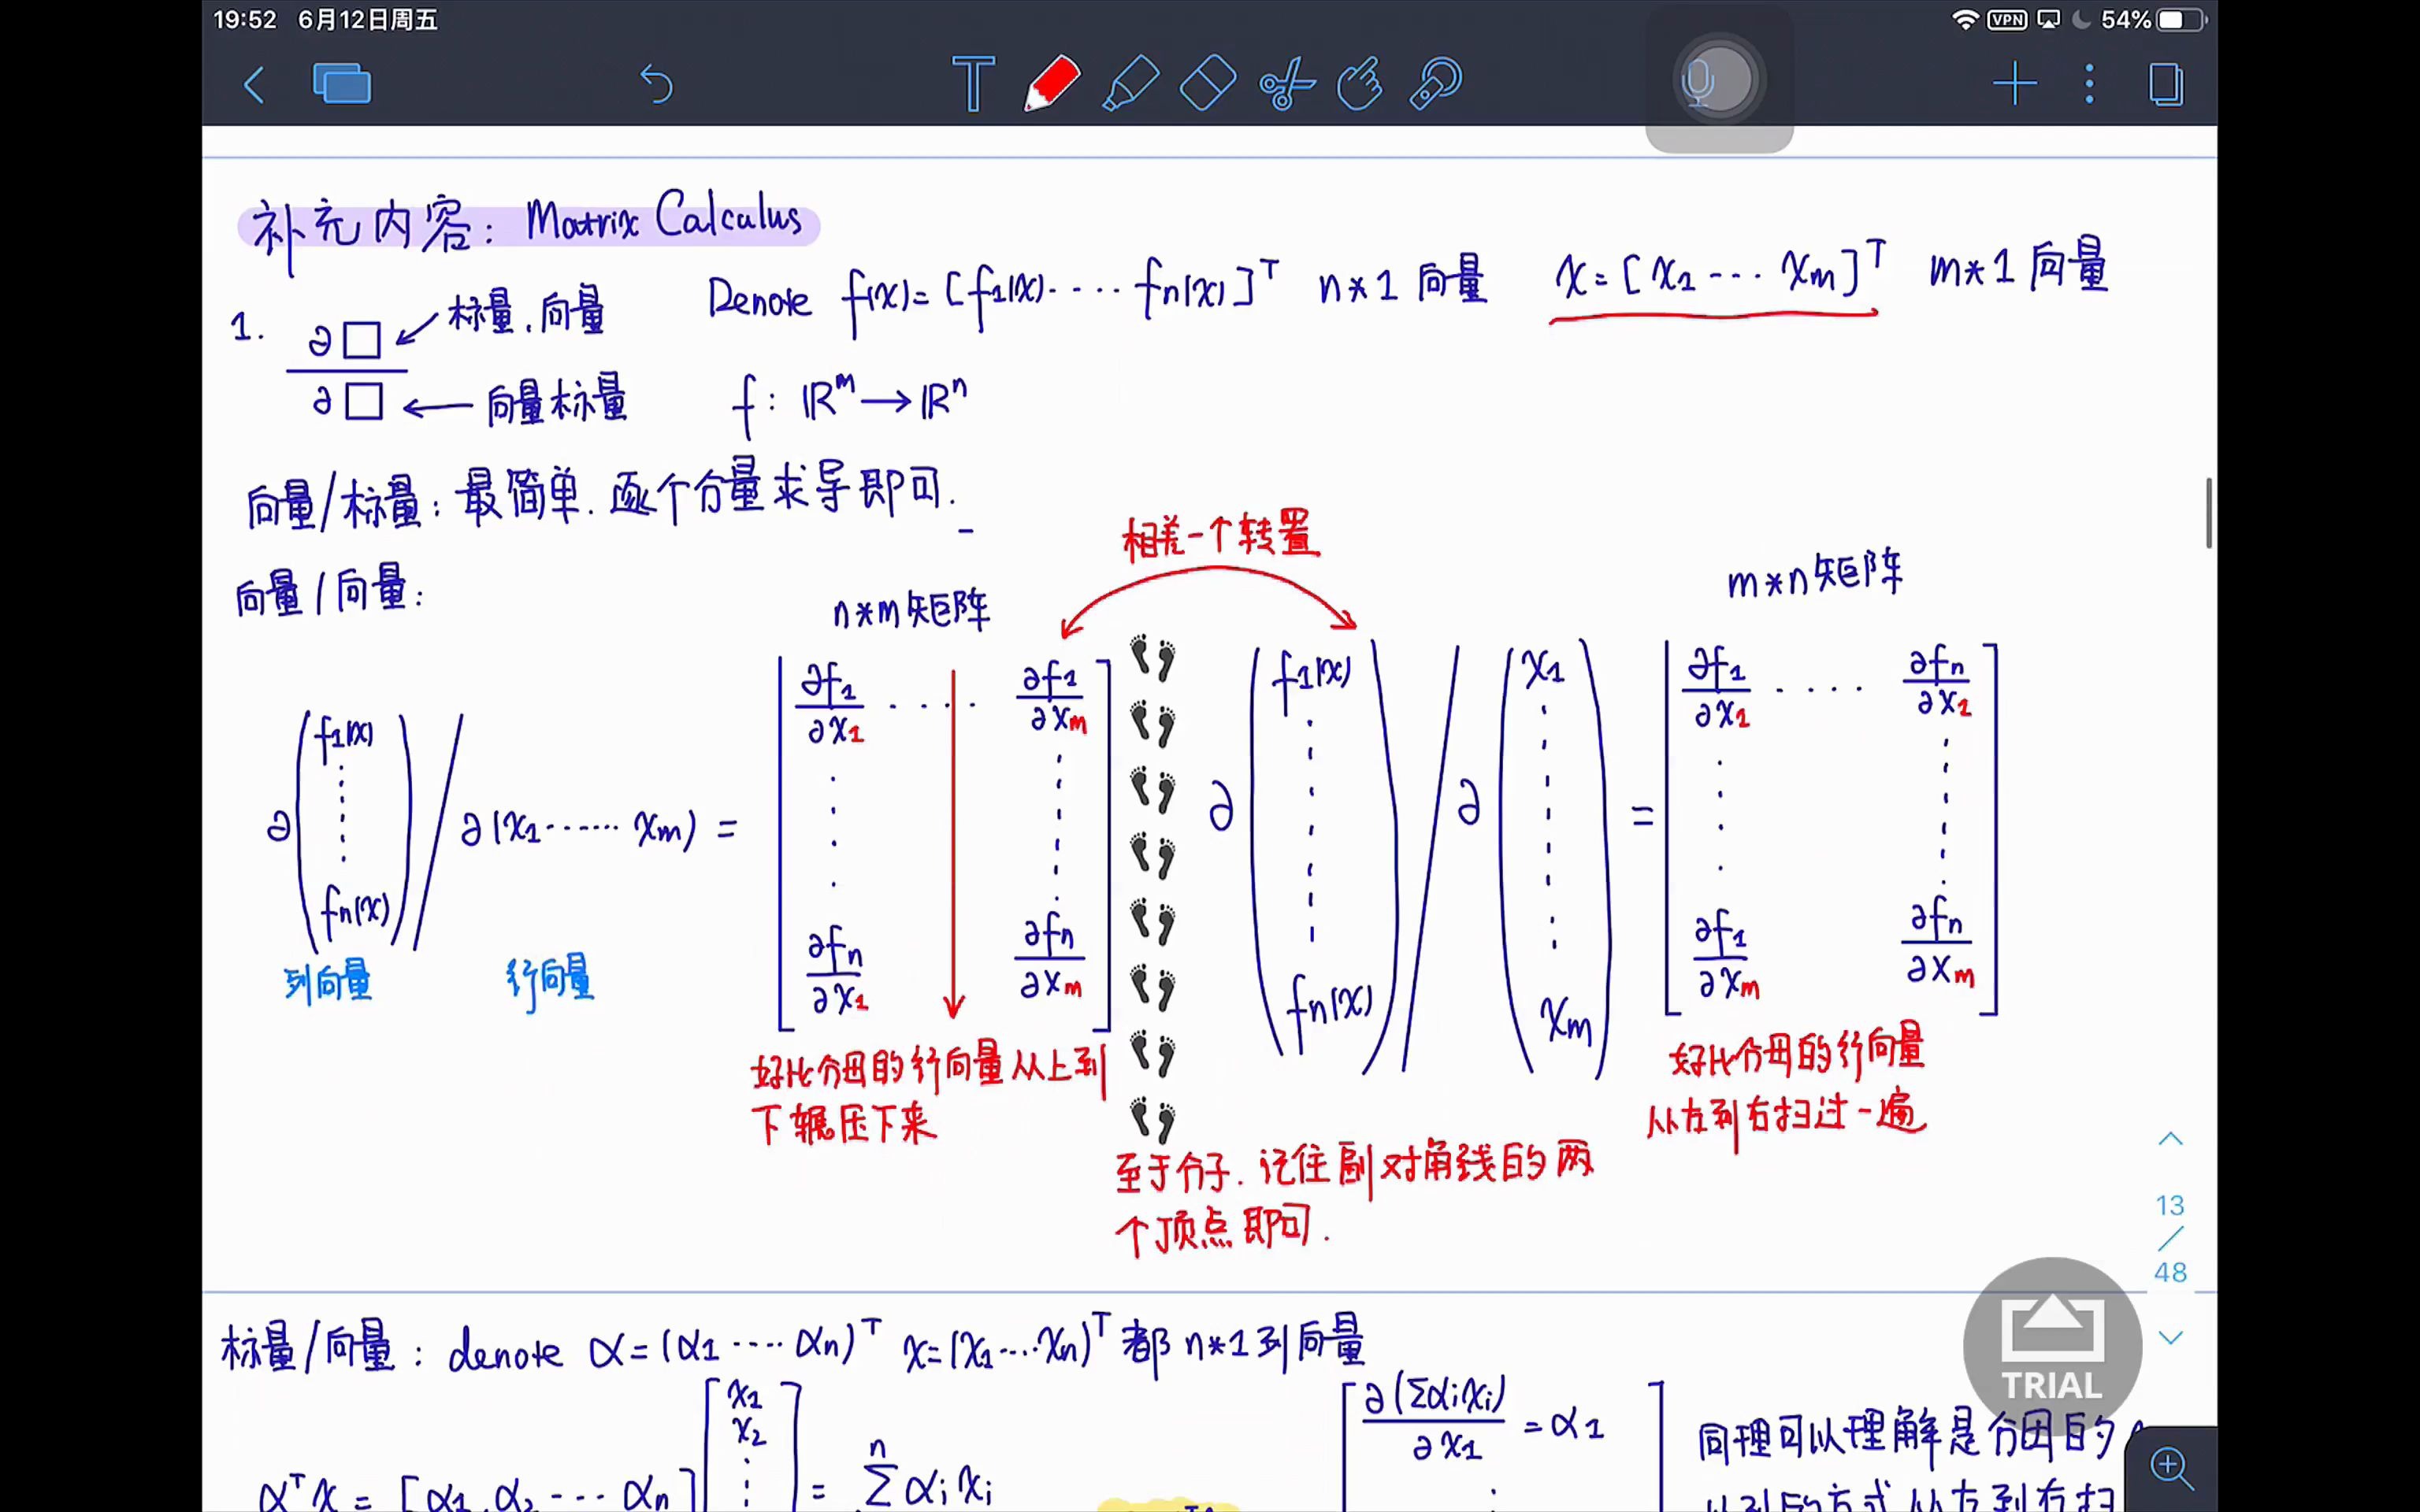 19:52 6月12日周五
VPN 54%
补充内容: Matrix Calculus
1. ∂□ ← 标量.向量
∂□ ← 向量标量
Denote f(x)=[f1(x)····fn(x)]^T n*1 向量 x=[x1···xm]^T m*1 向量
f: ℝ^m → ℝ^n
向量/标量: 最简单. 逐个分量求导即可.
向量/向量:
相差一个转置
n*m矩阵
m*n矩阵
∂(f1(x) ⋮ fn(x)) / ∂(x1······xm) = [∂f1/∂x1 ···· ∂f1/∂xm ⋮ ∂fn/∂x1 ∂fn/∂xm]
列向量 行向量
∂(f1(x) ⋮ fn(x)) / ∂(x1 ⋮ xm) = [∂f1/∂x1 ···· ∂fn/∂x1 ⋮ ∂f1/∂xm ∂fn/∂xm]
好比分母的行向量从上到
下辗压下来
好比分母的行向量
从左到右扫过一遍
至于分子. 记住副对角线的两
个顶点即可.
13
/
48
标量/向量: denote α=(α1····αn)^T x=(x1···xn)^T 都 n*1 列向量
α^T x = [α1 α2 ··· αn] [x1 x2 ⋮ = Σ^n αi xi
[∂(Σαixi)/∂x1 = α1 ]
同理可以理解是分母的
以列的方式从左到右扫
TRIAL